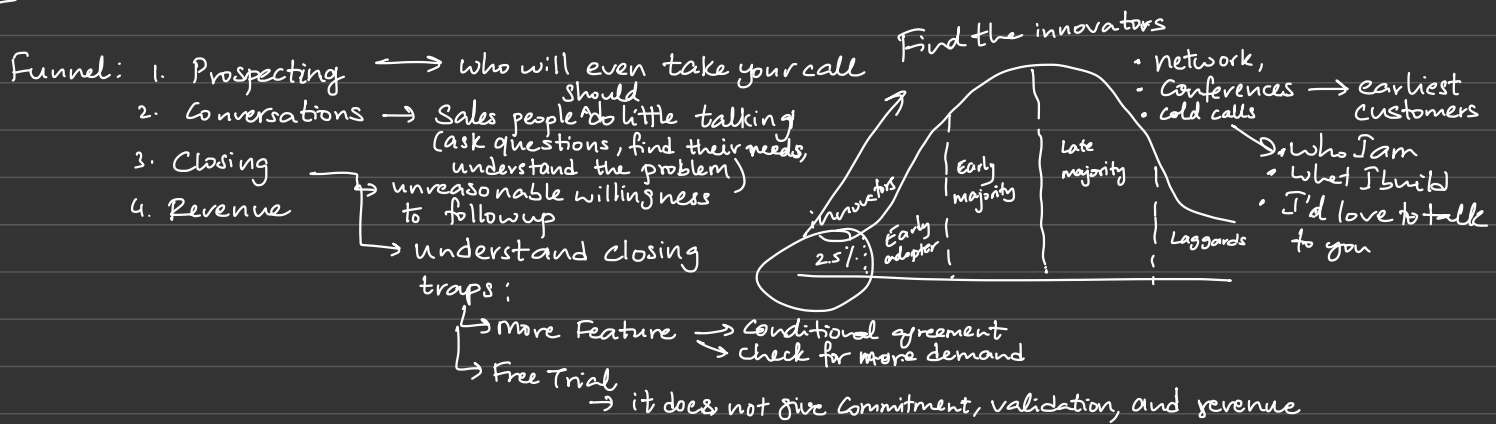 Find the innovators
Funnel: 1. Prospecting ↔ who will even take your call
2. Conversations → Sales people should do little talking
(ask questions, find their needs,
understand the problem)
3. Closing
→ unreasonable willingness
to followup
4. Revenue
→ understand closing
traps:
→ More Feature → Conditional agreement
→ check for more demand
→ Free Trial
→ it does not give commitment, validation, and revenue
innovators
2.5%
Early
adopter
Early
majority
Late
majority
Laggards
• network,
• Conferences → earliest
customers
• cold calls
• who I am
• what I build
• I'd love to talk
to you